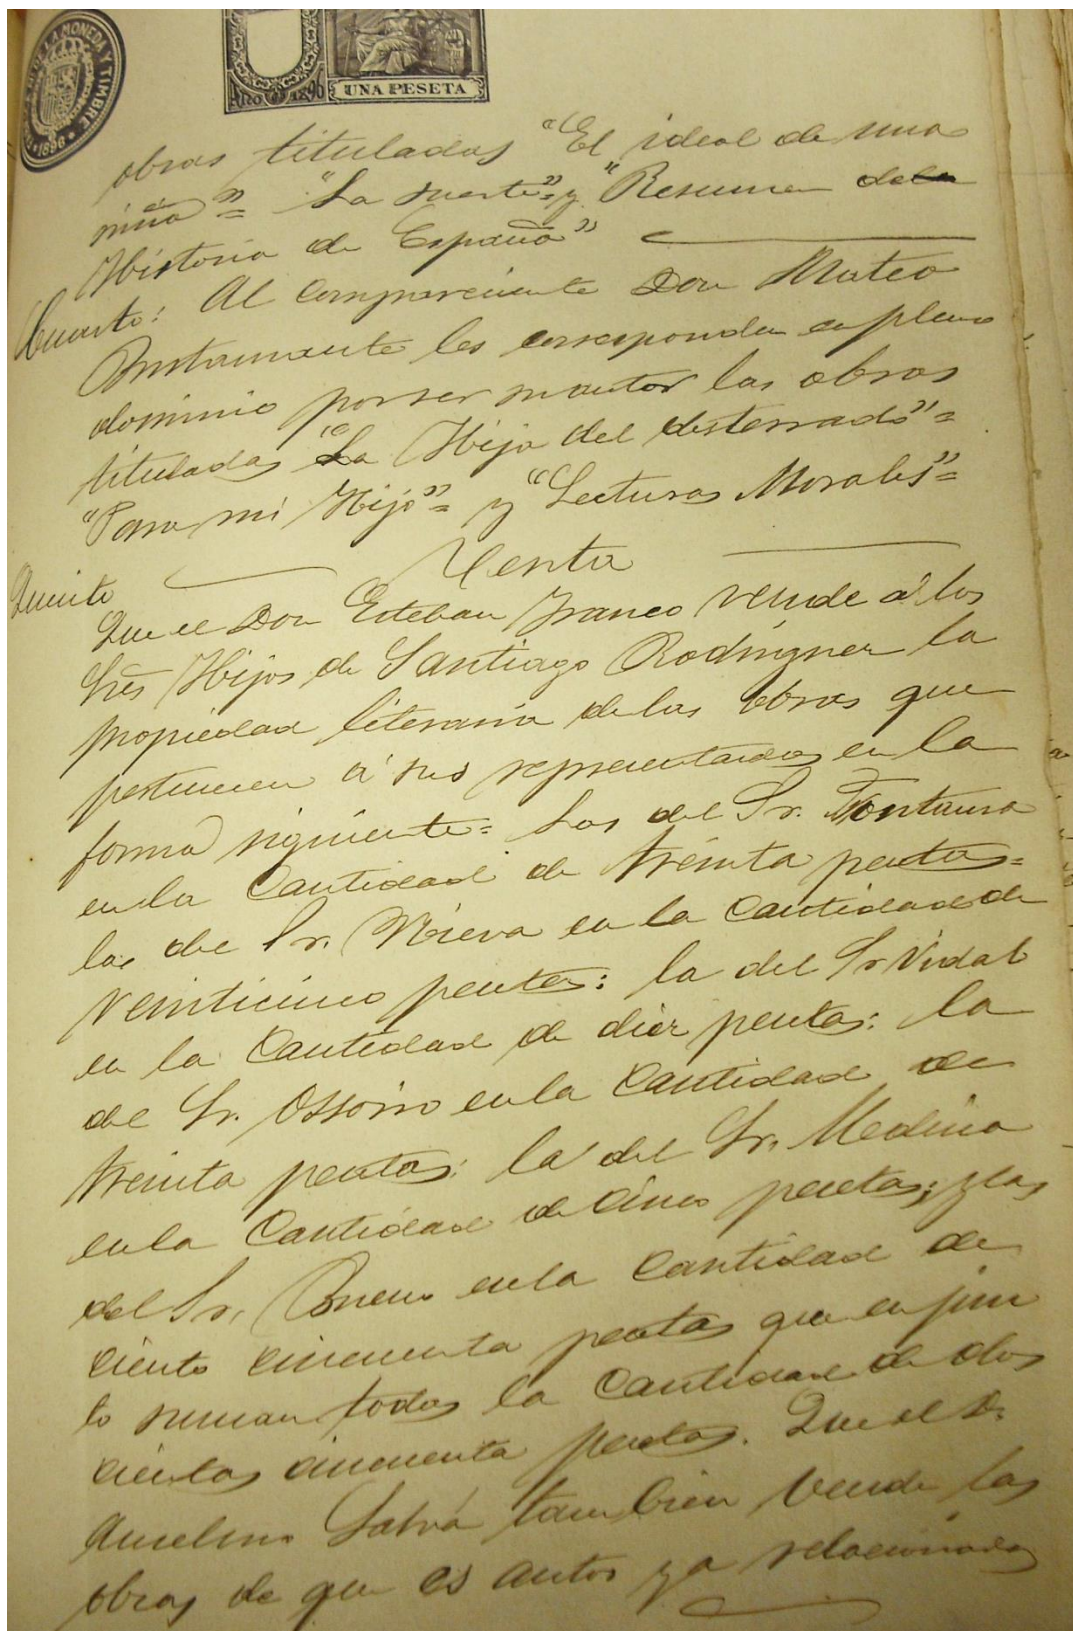 LA MONEDA Y TIMBRE
1896
Año 1896
UNA PESETA
obras tituladas "El ideal de una
niña"= "La muerte"= y "Resumen de la
Historia de España"
Cuarto: Al compareciente Don Mateo
Bustamante les corresponden en pleno
dominio por ser su autor las obras
tituladas "La Hija del desterrado"=
"Para mi Hijo"= y "Lecturas Morales"=
Venta
Quinto
Que el Don Esteban Franco vende á los
Sres Hijos de Santiago Rodriguez la
propiedad literaria de las obras que
pertenecen á sus representados en la
forma siguiente= Las del Sr. Fontaura
en la Cantidad de treinta pesetas=
las del Sr. en la Cantidad de
veinticinco pesetas: la del Sr Vidal
en la Cantidad de diez pesetas: la
del Sr. Ossorio en la Cantidad de
treinta pesetas: la del Sr. Medina
en la Cantidad de cinco pesetas; y las
del Sr. en la Cantidad de
ciento cincuenta pesetas que en jun
to suman todas la Cantidad de dos
cientas cincuenta pesetas. Que el D.
Anselmo Salvá tambien vende las
obras de que es autor ya relacionadas